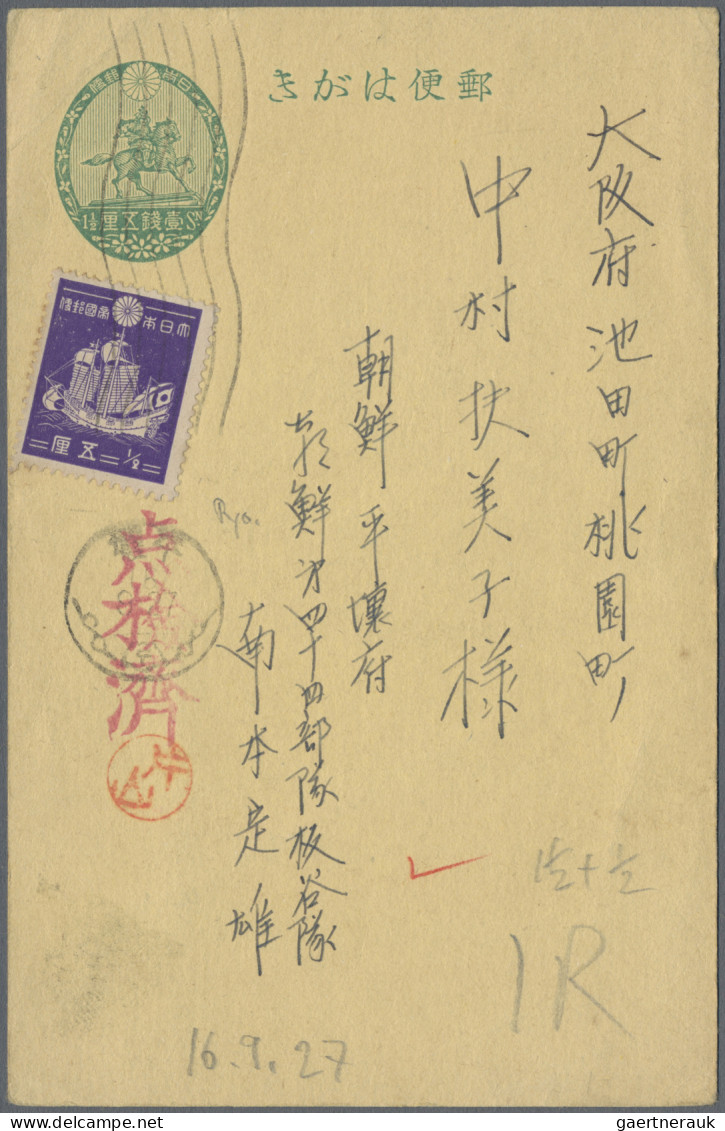 郵便はがき
壹錢五厘
1½ Sn
大日本帝國郵便
五厘
½
大阪府池田町桃園町
中村扶美子様
朝鮮平壤府
朝鮮第四十四部隊板谷隊
南本定雄
点検濟
Rya.
1½+½
1R
16.9.27
www.delcampe.net
gaertnerauk